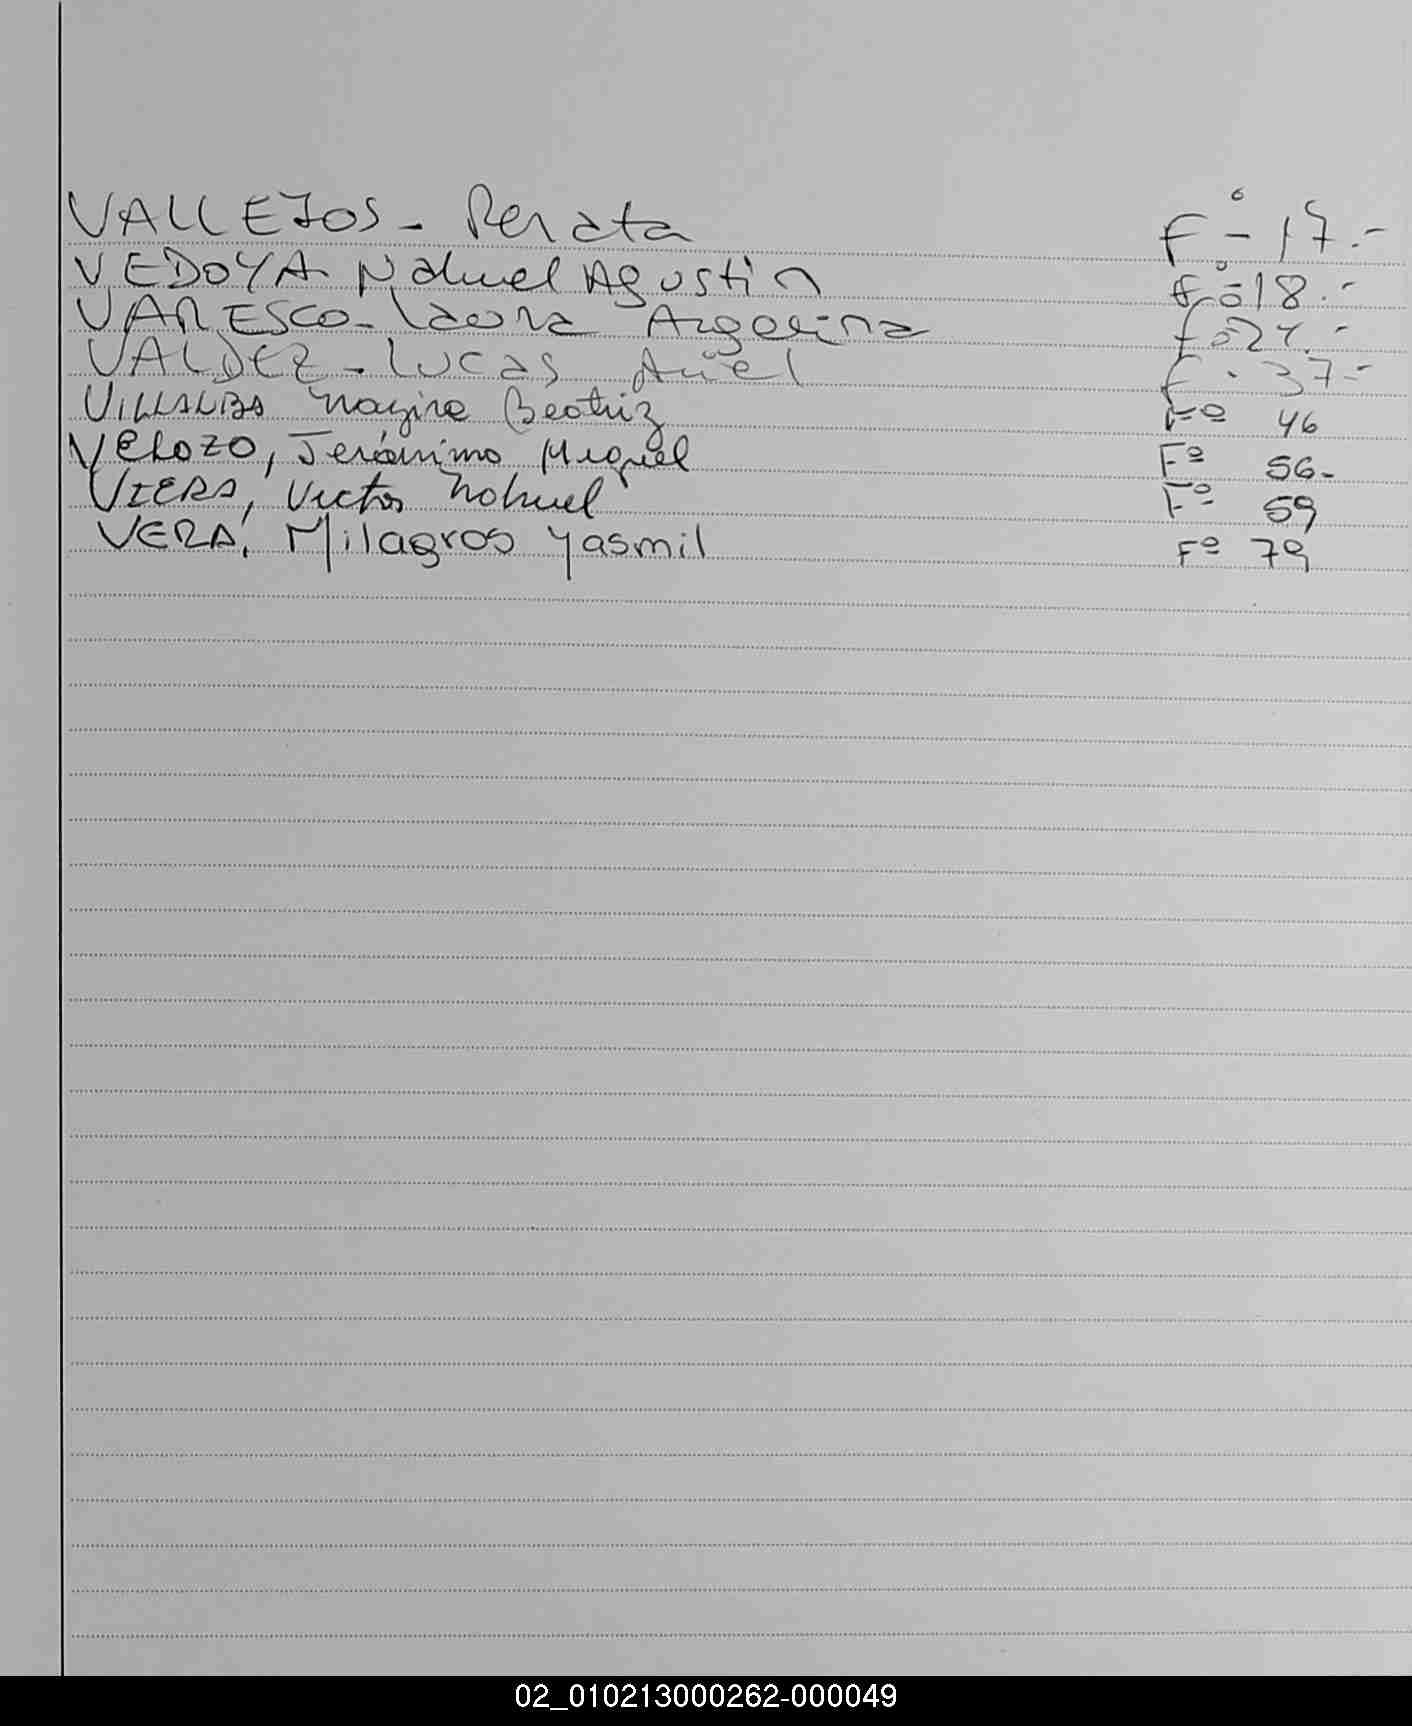 VALLEJOS - Renata F° 17.-
VEDOYA Nahuel Agustin Fº 18.-
VARESCO - Laura Angelina Fº 24.-
VALDEZ - Lucas Ariel F° 37.-
VILLALBA Nazira Beatriz Fº 46
VELOZO, Jerónimo Miguel Fº 56-
VIERA, Victor Nahuel Fº 59
VERA, Milagros Yasmil Fº 79
02_010213000262-000049